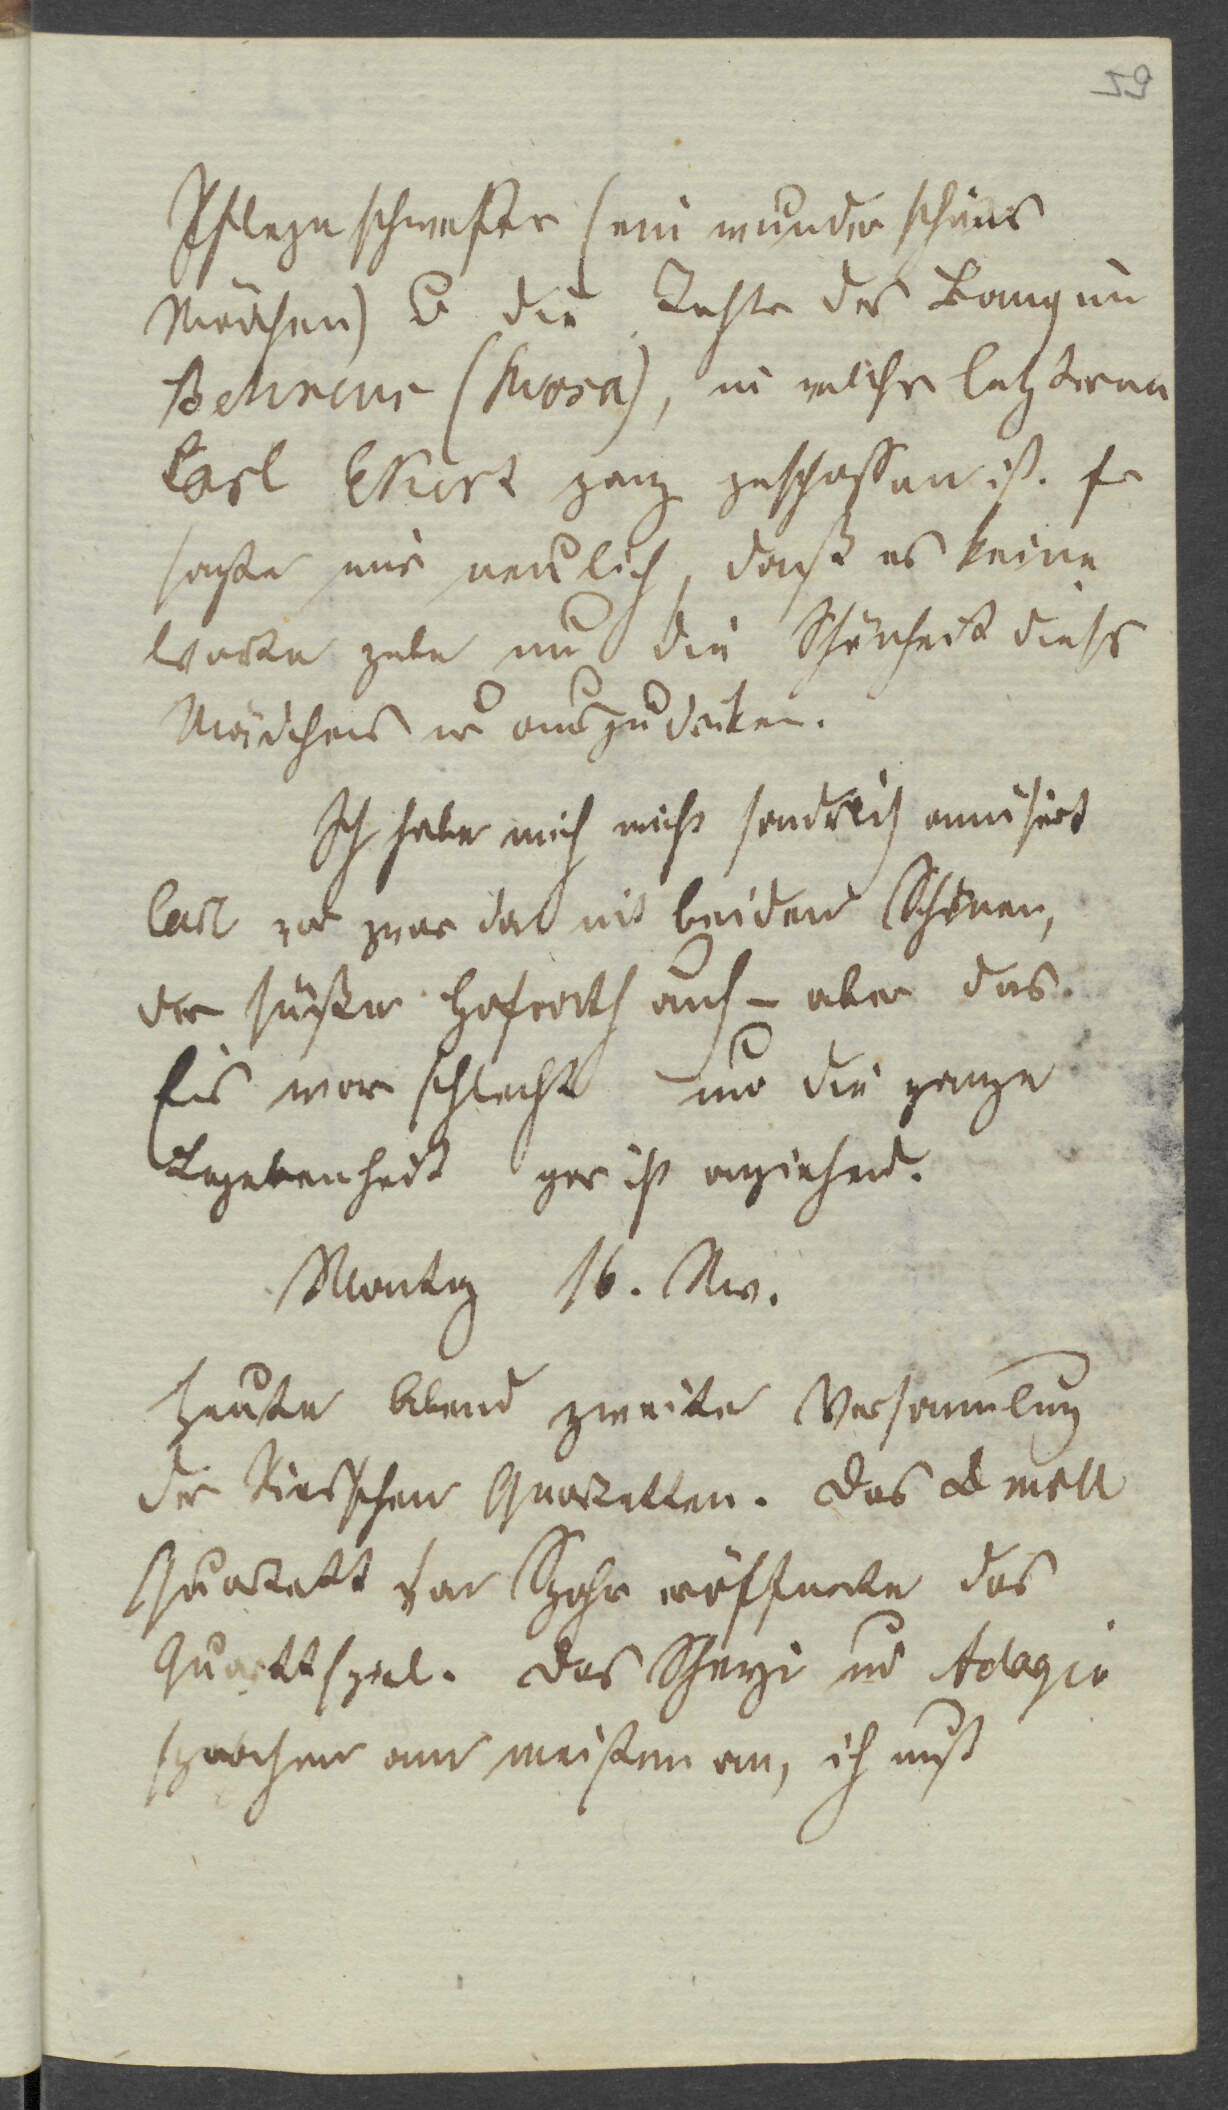 59
Pflegeschwester (ein wunderschönes
Mädchen) u die Tochter des Banquie
Behrens (Rosa), in welche letzteren
Carl Ekert ganz geschossen ist. Er
sagte mir neulich, daß es keine
Worte gebe um die Schönheit dieses
Mädchens auszudrücken.
Ich habe mich nicht sonderlich amüsirt
Carl war zwar da mit beiden Schönen,
der süße Hofrath auch – aber das
Eis war schlecht und die ganze
Begebenheit gar nicht anziehend.
Montag 16. Nov.
Heute Abend zweite Versammlung
der Riesschen Quartetten. Das D moll
Quartett von Spohr eröffnete das
Quartettspiel. Das Scherzo und Adagio
sprachen am meisten an, ich muß